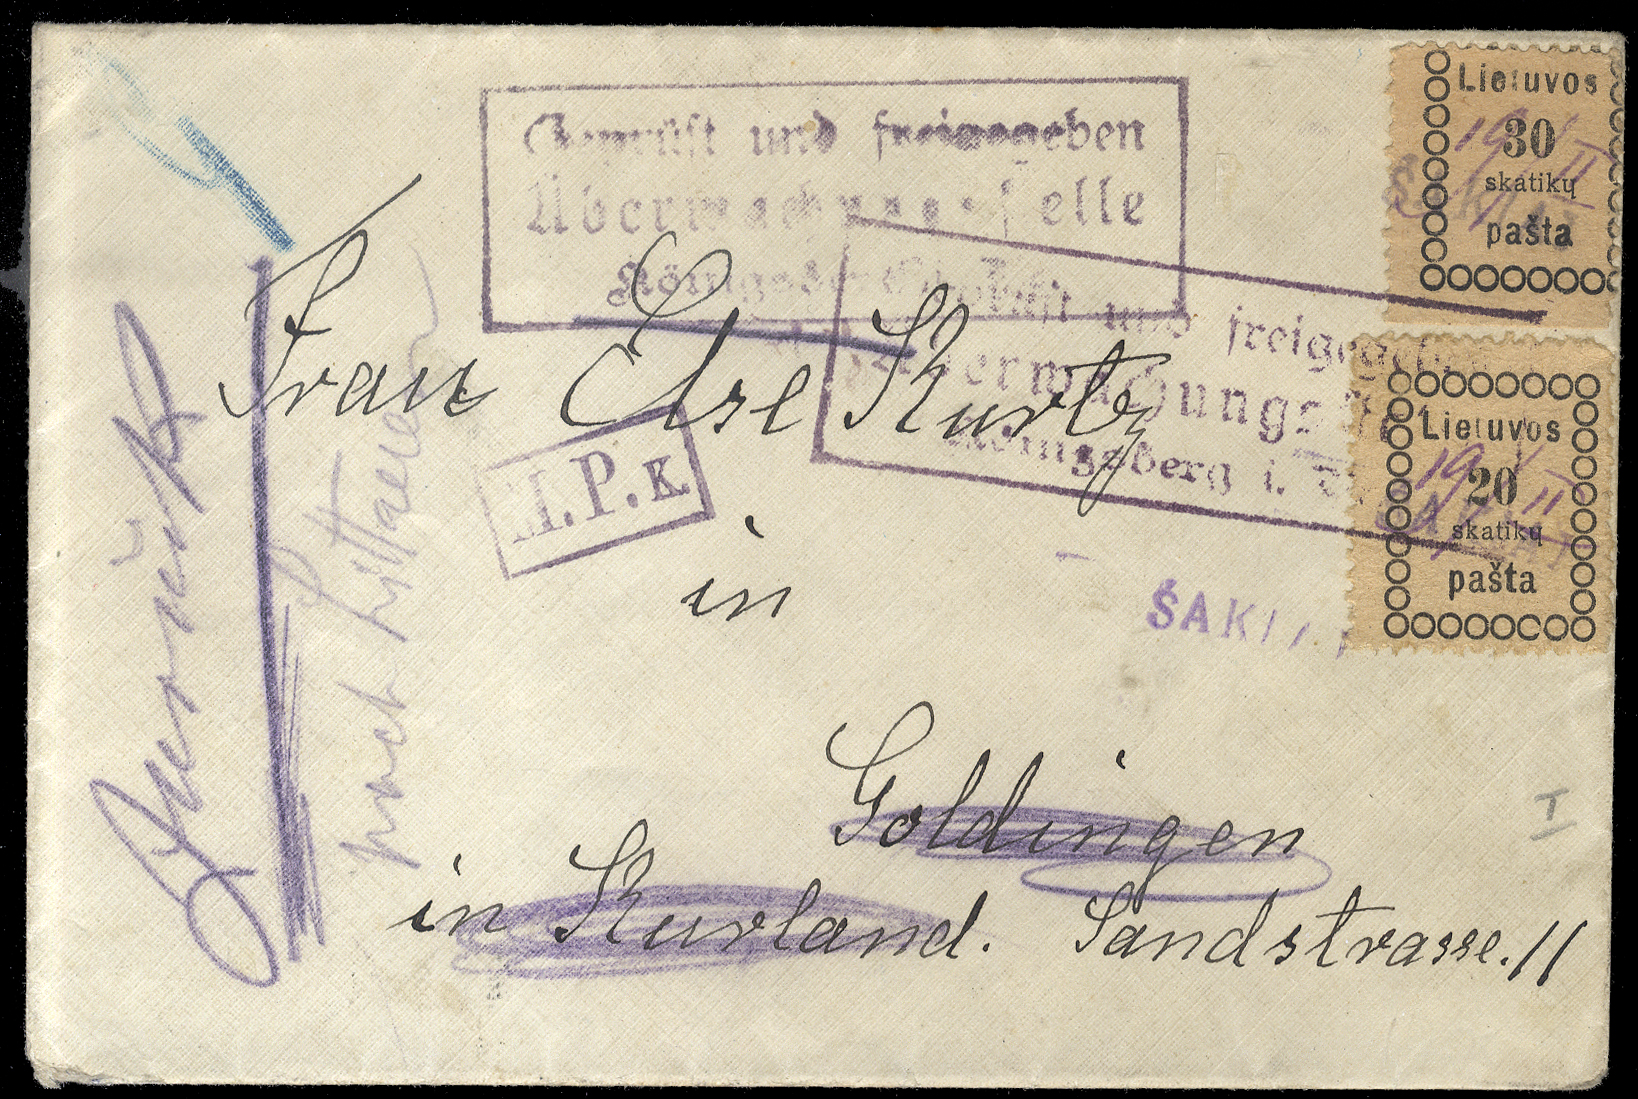 Geprüft und freigegeben
Überwachungsstelle
Königsberg
Geprüft und freigegeben
Überwachungsste
Königsberg i. 
Lietuvos
30
skatikų
pašta
Lietuvos
20
skatikų
pašta
19 II
19 II
ŠAKI
Frau Else Kurtz
in
Goldingen
in Kurland. Sandstrasse. 11
M.P.K.
Zurück
nach Littauen
I